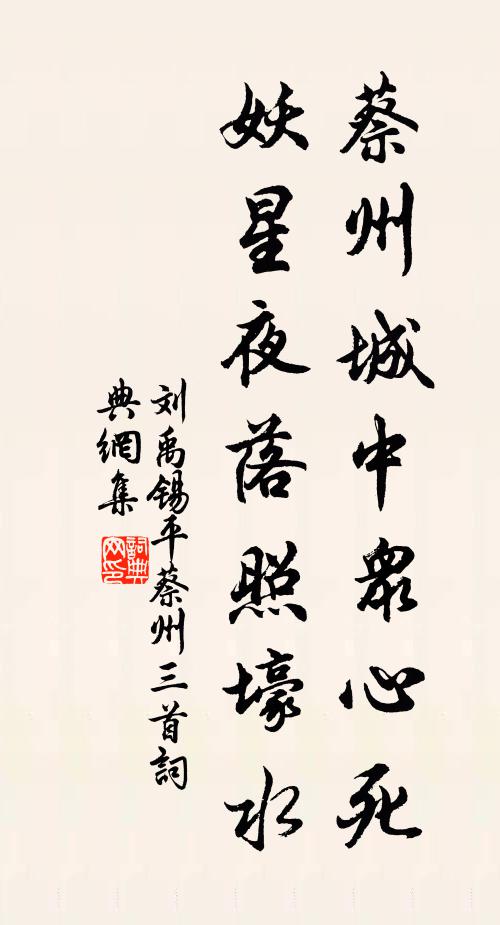 蔡州城中眾心死
妖星夜落照壕水
刘禹锡平蔡州三首詞
典網集
詞典网印